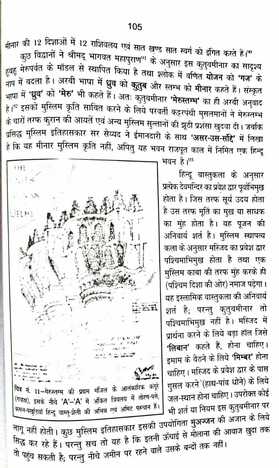 105
मीनार की 12 दिशाओं में 12 राशिवलय एवं सात खण्ड सात स्वर्ग को इंगित करते है।
कुछ विद्वानों ने श्रीमद् भागवत महापुराण के अनुसार इस कुतुबमीनार का सादृश्य
हुबहु मेरुपर्वत के मॉडल से स्थापित किया है तथा श्लोक में वर्णित योजन को 'गज' के
नाप में बदला है। अरबी भाषा में ध्रुव को कुतुब और स्तम्भ को मीनार कहते हैं। संस्कृत
भाषा में 'ध्रुव' को 'मेरु' भी कहते है। अतः कुतुबमीनार 'मेरुस्तम्भ' का ही अरबी अनुवाद
है। इसको मुस्लिम कृति साबित करने के लिये परवर्ती कट्टरपंथी मुसलमानों ने मेरुस्तम्भ
के चारों तरफ कुरान की आयतें एवं अन्य मुस्लिम सुल्तानों की झूठी प्रशस्ति खुदवा दी। जबकि
प्रसिद्ध मुस्लिम इतिहासकार सर सैय्यद ने ईमानदारी के साथ 'असर-उस-सदि' में लिखा
है कि यह मीनार मुस्लिम कृति नहीं, अपितु यह भवन राजपूत काल में निर्मित एक हिन्दू
भवन है।
हिन्दू वास्तुकला के अनुसार
प्रत्येक देवमन्दिर का प्रवेश द्वार पूर्वाभिमुख
होता है। जिस तरफ सूर्य उदय होता
है उस तरफ मूर्ति का मुख या साधक
का मुंह होता है। यह पूजन की
अनिवार्य शर्त है। मुस्लिम स्थापत्य
कला के अनुसार मस्जिद का प्रवेश द्वार
पश्चिमाभिमुख होता है तथा एक
मुस्लिम काबा की तरफ मुंह करके ही
(पश्चिम दिशा की ओर) नमाज पढ़ेगा।
यह इस्लामिक वास्तुकला की अनिवार्य
शर्त है; परन्तु कुतुबमीनार तो
पश्चिमाभिमुख नहीं है। मस्जिद में
प्रार्थना करने के लिये बड़ा हॉल जिसे
'लिबान' कहते हैं, होना चाहिए।
इमाम के बैठने के लिये 'मिम्बर' होना
चाहिए। मस्जिद के प्रवेश द्वार के पास
गुसल करने (हाथ-पांव धोने) के लिये
जल-स्थान होना चाहिए। उपरोक्त कोई
भी शर्त या नियम इस कुतुबमीनार पर
चित्र नं. 11 –मेरुस्तम्भ की प्रथम मंजिल के आलंकारिक कंगूरे
(गवाक्ष), इसके नीचे 'A–'A' में अंकित त्रिवलय में तोरण-पत्ते,
लागू नहीं होती। कुछ मुस्लिम इतिहासकार इसकी उपयोगिता मुअज्जन की अजान के लिये
सिद्ध कर रहे हैं। परन्तु सच तो यह है कि इतनी ऊंचाई से मौलाना की आवाज खुदा तक
तो पहुंच सकती है; परन्तु नीचे जमीन पर रहने वाले उसके बन्दों तक नहीं।